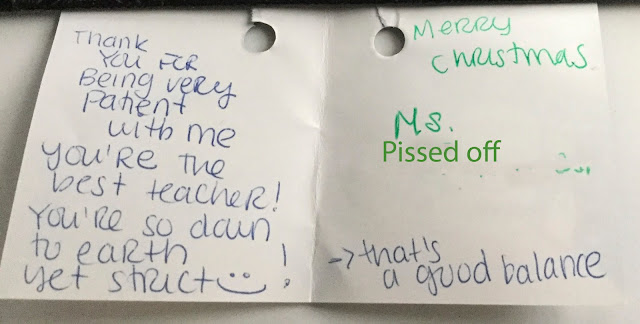 Thank
You FOR
Being very
Patient
with me
You're the
best teacher!
You're so down
to earth
yet strict !
Merry
Christmas
Ms.
Pissed off
→ that's
a good balance